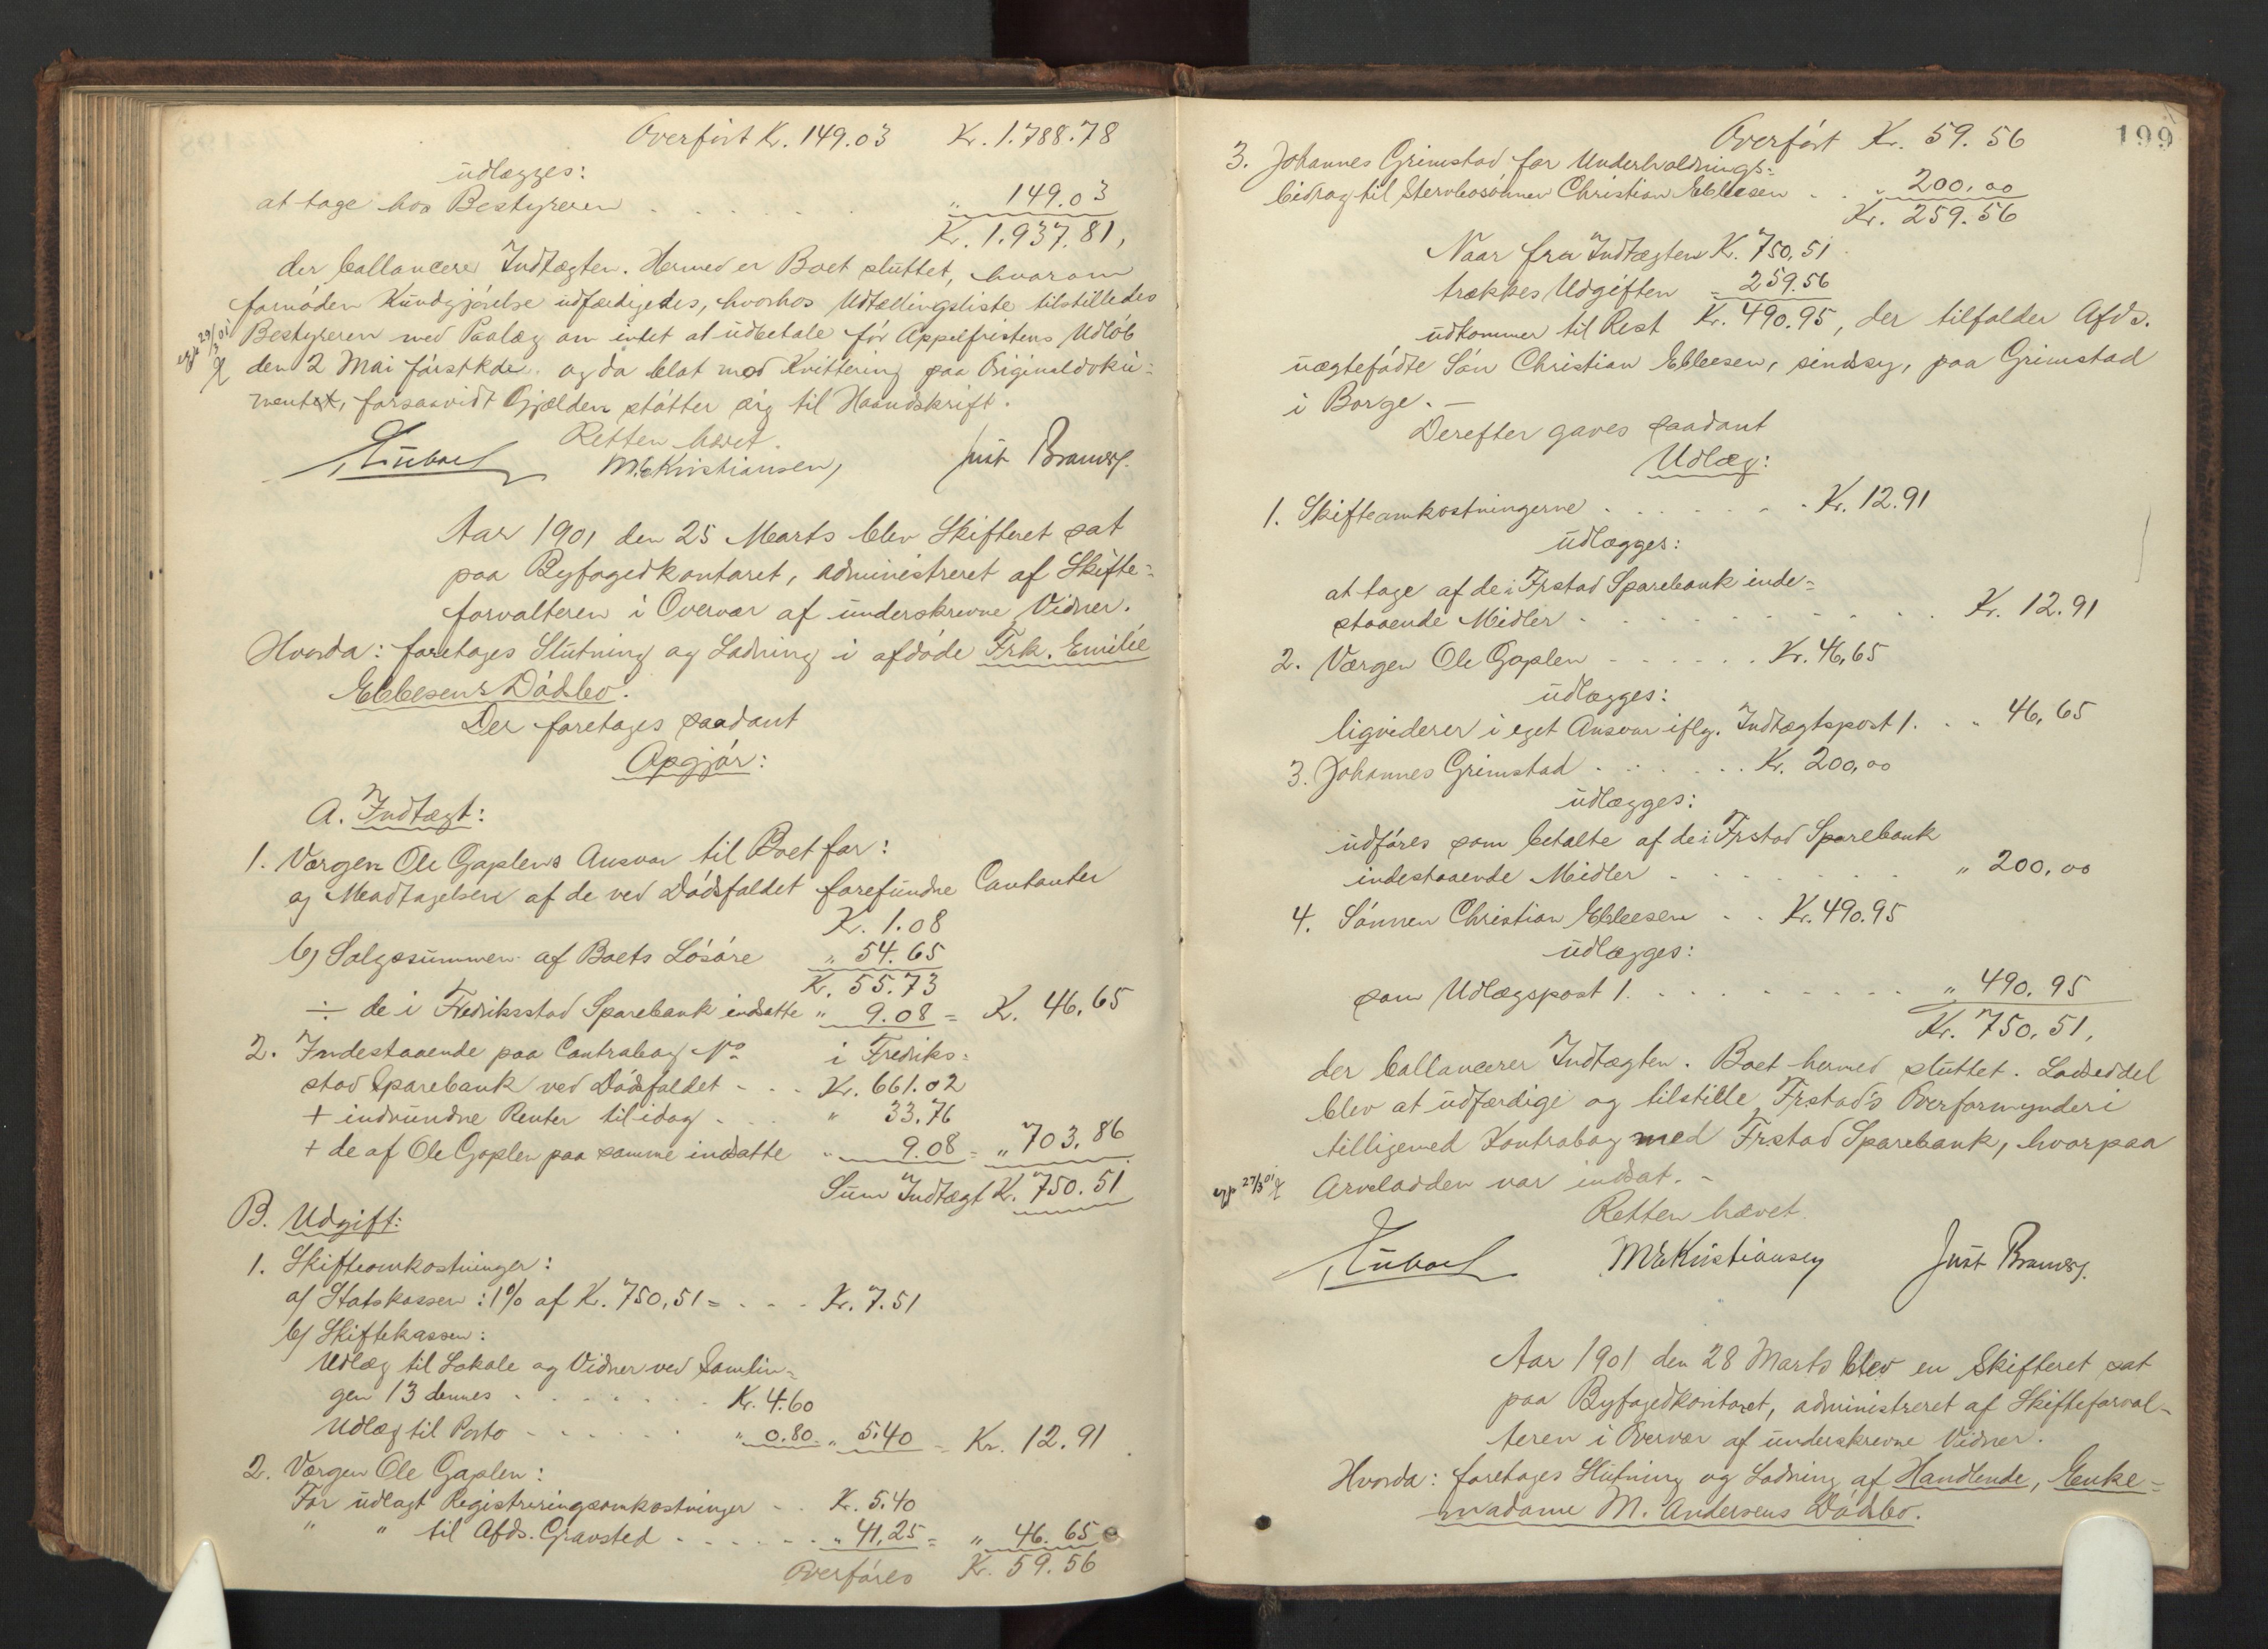 Overført K. 149.03 Kr. 1.788.78
udlægges:
at tage hos Bestyreren . . . . . . „ 149.03
Kr. 1.937.81,
der ballancerer Indtægten. Hermed er Boet sluttet, hvorom
fornøden Kundgjørelse udfærdigedes, hvorhos Udtællingsliste tilstilledes
Bestyreren med Paalæg om intet at udbetale før Appelfristens Udløb
exp 29/3 01
den 2 Mai førstkde. og da blot mod Kvittering paa Originaldoku-
mentet, forsaavidt Gjælden støtter sig til Haandskrift.
Retten hævet.
M. Kristiansen, Just Bramsg.
Aar 1901 den 25 Marts blev Skifteret sat
paa Byfogedkontoret, administreret af Skifte-
forvalteren i Overvær af underskrevne Vidner.
Hvorda: foretages Slutning og Lodning i afdøde Frk. Emilie
Ebbesens Dødsbo.
Der foretages saadant
Opgjør:
A. Indtægt:
1. Værgen Ole Gaplens Ansvar til Boet for:
a) Modtagelsen af de ved Dødsfaldet forefundne Contanter
K. 1.08
b) Salgssummen af Boets Løsøre „ 54.65
K. 55.73
÷ de i Fredriksstad Sparebank indsatte „ 9.08 = K. 46,65
2. Indestaaende paa Contrabog No i Fredriks-
stad Sparebank ved Dødsfaldet - . . Kr. 661.02
+ indvundne Renter til idag . . . „ 33.76
+ de af Ole Gaplen paa samme indsatte „ 9.08 = „ 703.86
Sum Indtægt K. 750.51
B. Udgift:
1. Skifteomkostninger:
a) Statskassen: 1% af K. 750,51 = . . . Kr. 7.51
b) Skiftekassen:
Udlæg til Lokale og Vidner ved Samlin-
gen 13 dennes . . . . . . Kr. 4.60
Udlæg til Porto . . . . . . „ 0.80 „ 5.40 = Kr. 12.91
2. Værgen Ole Gaplen:
For udlagt Registreringsomkostninger . . K. 5.40
„ „ til Afds. Gravsted . . . . . . „ 41,25 = „ 46.65
Overføres K. 59.56
199
Overført Kr. 59.56
3. Johannes Grimstad for Underholdnings-
bidrag til Stervbosønnen Christian Ebbesen . . „ 200,00
Kr. 259.56
Naar fra Indtægten K. 750,51
trækkes Udgiften „ 259.56
udkommer til Rest Kr. 490.95, der tilfalder Afds.
uægtefødte Søn Christian Ebbesen, sindssyg, paa Grimstad
i Borge. –
Derefter gaves saadant
Udlæg:
1. Skifteomkostningerne . . . . . . . Kr. 12.91
udlægges:
at tage af de i Frstad Sparebank inde-
staaende Midler . . . . . . . . . Kr. 12.91
2. Værgen Ole Gaplen . . . . . Kr. 46,65
udlægges:
ligviderer i eget Ansvar iflg. Indtægtspost 1. . „ 46,65
3. Johannes Grimstad . . . . . . Kr. 200,00
udlægges:
udføres som betalte af de i Frstad Sparebank
indestaaende Midler . . . . . . „ 200,00
4. Sønnen Christian Ebbesen . . Kr. 490.95
udlægges:
som Udlægspost 1. . . . . . . . . „ 490.95
Kr. 750,51,
der ballancerer Indtægten. Boet hermed sluttet. Lodseddel
blev at udfærdige og tilstille Frstad's Overformynderi
tilligemed Kontrabog med Frstad Sparebank, hvorpaa
exp 27/3 01
Arvelodden var indsat. –
Retten hævet.
M. Kristiansen Just Bramsg.
Aar 1901 den 28 Marts blev en Skifteret sat
paa Byfogedkontoret, administreret af Skifteforval-
teren i Overvær af underskrevne Vidner.
Hvorda: foretages Slutning og Lodning af Handlende, Enke-
madame M. Andersens Dødsbo.